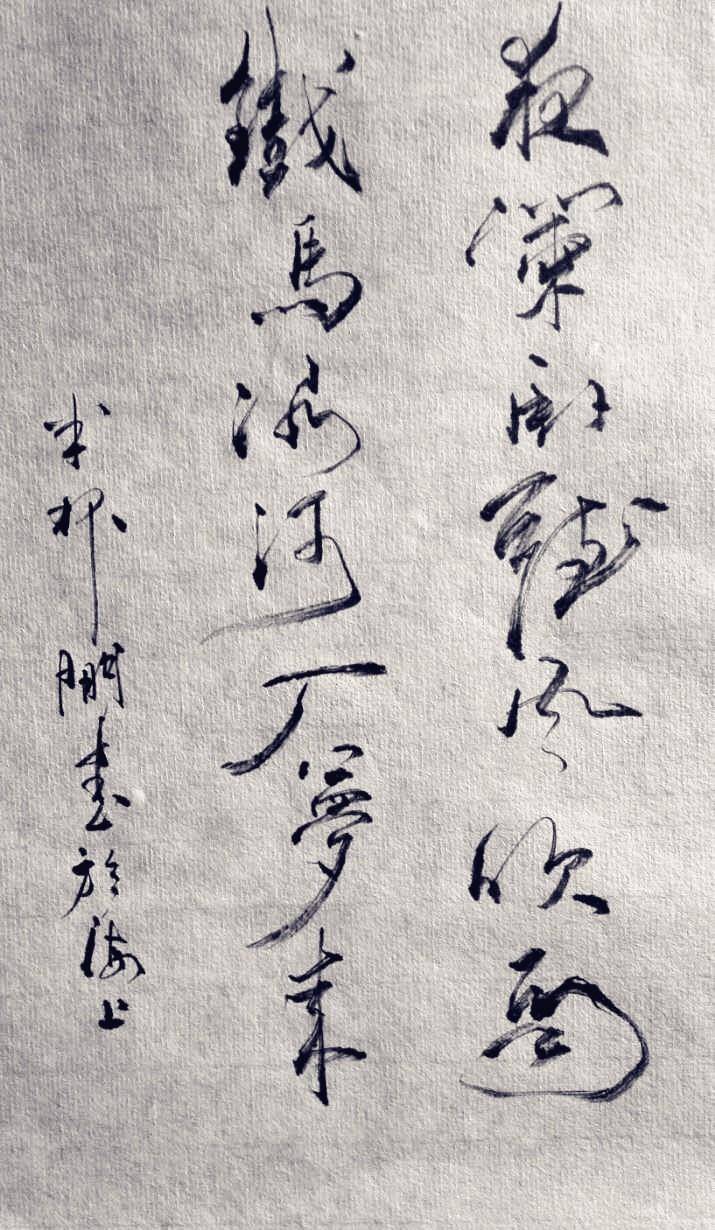 夜闌臥聽風吹雨
鐵馬冰河入夢來
半杯鵬書於海上